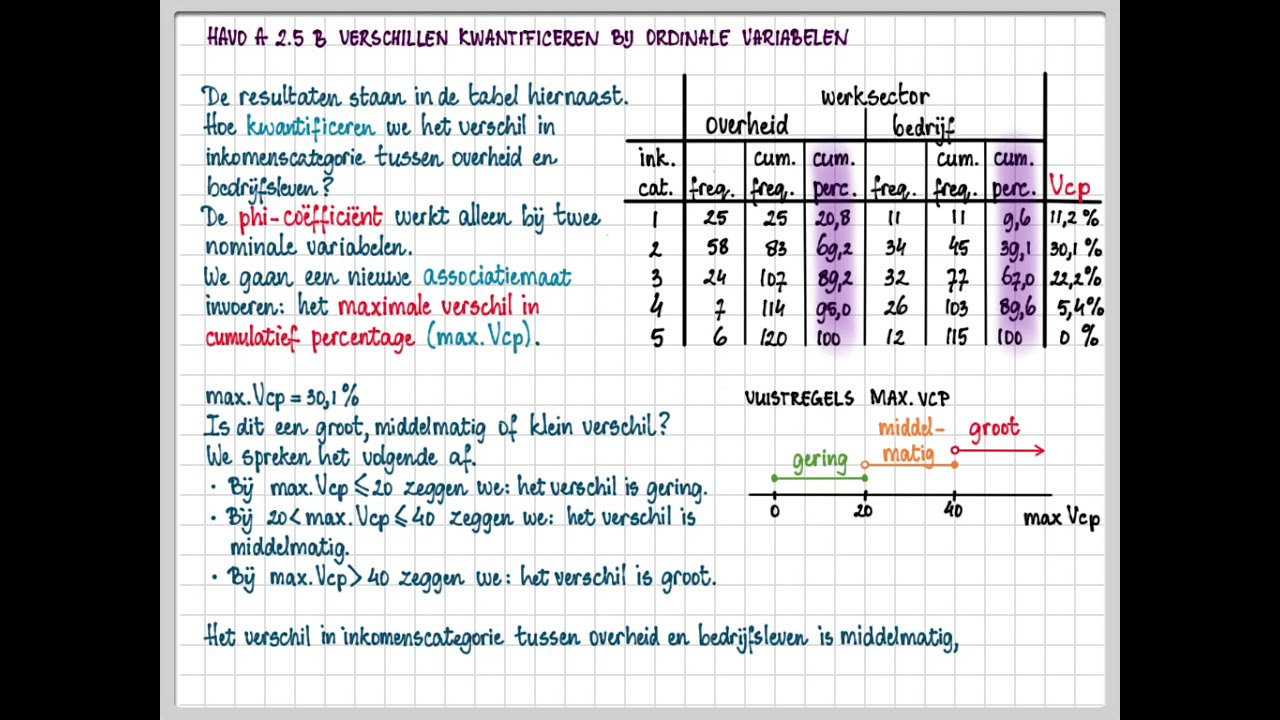 HAVO A 2.5 B VERSCHILLEN KWANTIFICEREN BIJ ORDINALE VARIABELEN
De resultaten staan in de tabel hiernaast.
Hoe kwantificeren we het verschil in
inkomenscategorie tussen overheid en
bedrijfsleven?
De phi-coëfficiënt werkt alleen bij twee
nominale variabelen.
We gaan een nieuwe associatiemaat
invoeren: het maximale verschil in
cumulatief percentage (max.Vcp).
werksector
overheid bedrijf
ink. cum. cum. cum. cum.
cat. freq. freq. perc. freq. freq. perc. Vcp
1 25 25 20,8 11 11 9,6 11,2 %
2 58 83 69,2 34 45 39,1 30,1 %
3 24 107 89,2 32 77 67,0 22,2%
4 7 114 95,0 26 103 89,6 5,4%
5 6 120 100 12 115 100 0 %
max.Vcp = 30,1 %
Is dit een groot, middelmatig of klein verschil?
We spreken het volgende af.
· Bij max.Vcp ⩽ 20 zeggen we: het verschil is gering.
· Bij 20 < max.Vcp ⩽ 40 zeggen we: het verschil is
middelmatig.
· Bij max.Vcp > 40 zeggen we: het verschil is groot.
VUISTREGELS MAX. VCP
gering middel- groot
matig
0 20 40 max Vcp
Het verschil in inkomenscategorie tussen overheid en bedrijfsleven is middelmatig,